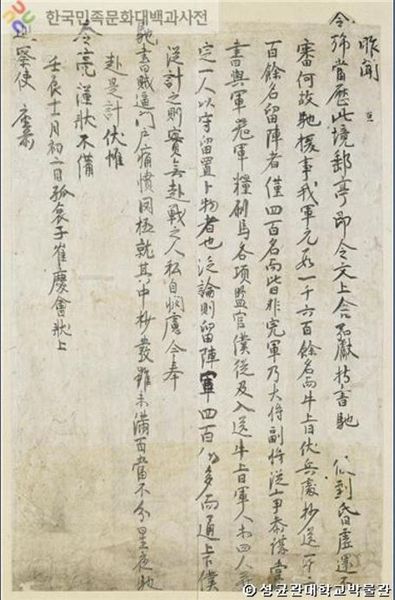 한국민족문화대백과사전
昨聞
令旆當歷此境郵亭即令文上舍弘獻持書馳
審何故馳援事我軍元數一千六百餘名而牛上日伏兵處抄送一千二
百餘名留陣者僅四百名而此亦非完軍乃大將副將從事參謀掌
書與軍器軍糧刷馬各項監官僕從及入送牛上日軍人
定一人以守留置卜物者也泛論則留陣軍四百非多而通上下僕
從計之則實無赴戰之人私自悶慮今奉
馳書賊逼門戶痛憤罔極就其中抄發雖未滿百當不分星夜馳
赴是計伏惟
令亮謹狀不備
壬辰十一月初二日孤哀子崔慶會狀上
使
© 성균관대학교박물관